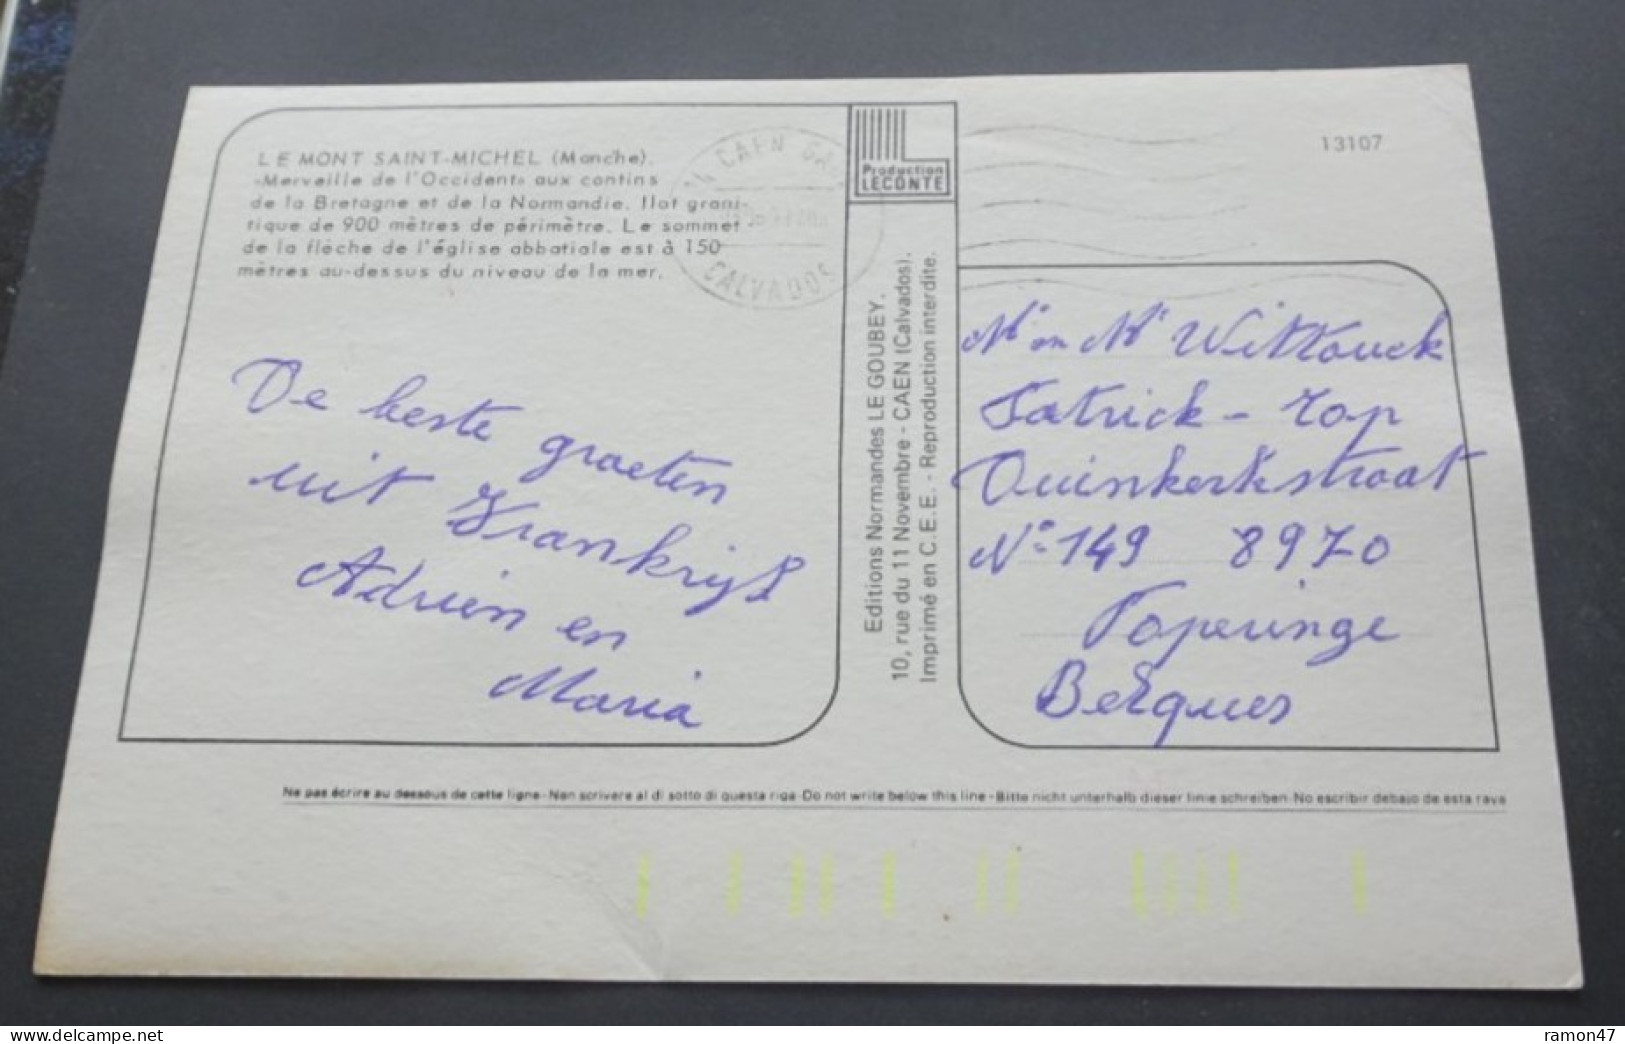 LE MONT SAINT-MICHEL (Manche).
«Merveille de l'Occident» aux confins
de la Bretagne et de la Normandie. Ilot grani-
tique de 900 mètres de périmètre. Le sommet
de la flèche de l'église abbatiale est à 150
mètres au-dessus du niveau de la mer.
De beste groeten
uit Frankrijk
Adrien en
Maria
14 CAEN GA
CALVADOS
Production
LECONTE
Editions Normandes LE GOUBEY.
10, rue du 11 Novembre - CAEN (Calvados).
Imprimé en C.E.E. - Reproduction interdite.
13107
Mr en Mr Wittouck
Patrick - Top
Duinkerkstraat
N° 149 8970
Poperinge
Belgques
Ne pas écrire au dessous de cette ligne - Non scrivere al di sotto di questa riga - Do not write below this line - Bitte nicht unterhalb dieser linie schreiben - No escribir debajo de esta raya
delcampe.net
ramon47